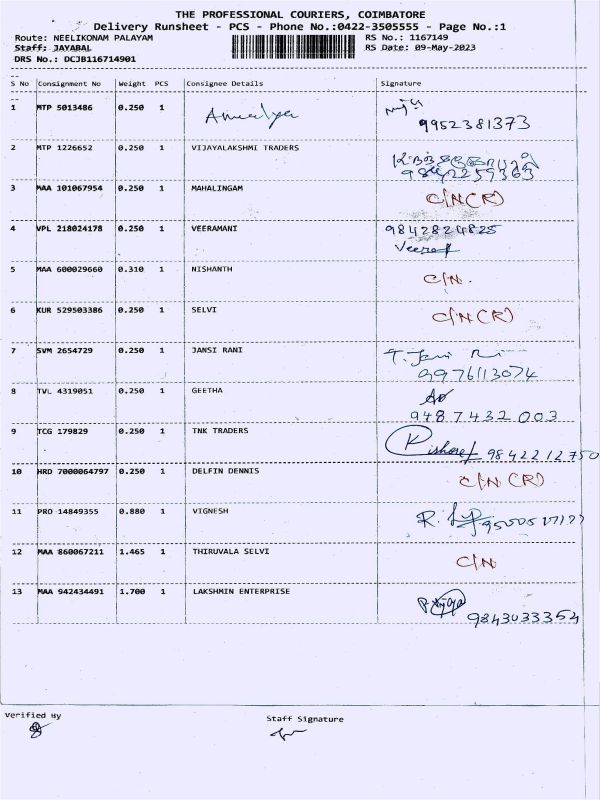 THE PROFESSIONAL COURIERS, COIMBATORE
Delivery Runsheet - PCS - Phone No.:0422-3505555 - Page No.:1
Route: NEELIKONAM PALAYAM RS No.: 1167149
Staff: JAYABAL RS Date: 09-May-2023
DRS No.: DCJB116714901
S No Consignment No Weight PCS Consignee Details Signature
1 MTP 5013486 0.250 1
9952381373
2 MTP 1226652 0.250 1 VIJAYALAKSHMI TRADERS
9842259363
3 MAA 101067954 0.250 1 MAHALINGAM C/N(R)
4 VPL 218024178 0.250 1 VEERAMANI 9842824825
5 MAA 600029660 0.310 1 NISHANTH C/N.
6 KUR 529503386 0.250 1 SELVI C/N(R)
7 SVM 2654729 0.250 1 JANSI RANI T. Jansi Rani
9976113074
8 TVL 4319051 0.250 1 GEETHA
9487432003
9 TCG 179829 0.250 1 TNK TRADERS Kishore 9842212750
10 HRD 7000064797 0.250 1 DELFIN DENNIS C/N (R)
11 PRO 14849355 0.880 1 VIGNESH
12 MAA 860067211 1.465 1 THIRUVALA SELVI C/N
13 MAA 942434491 1.700 1 LAKSHMIN ENTERPRISE
9843033354
Verified By Staff Signature